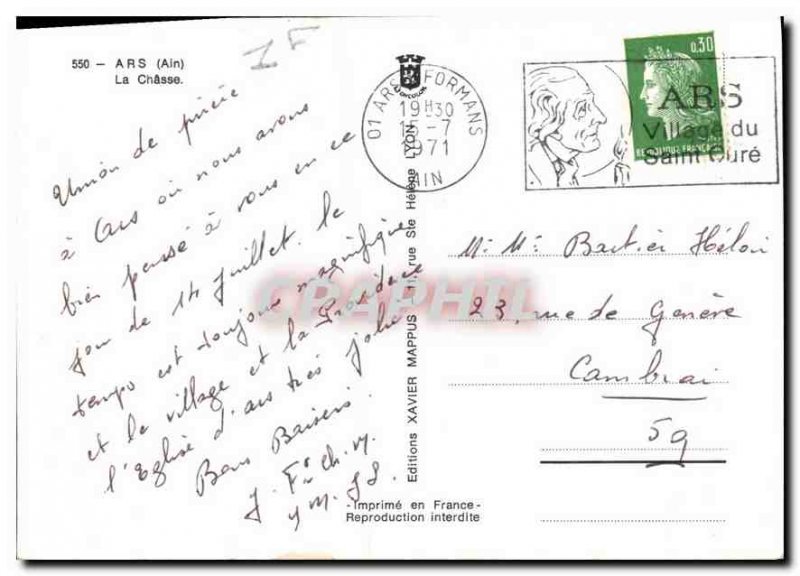 550 — ARS (Ain)
La Châsse.
Union de prière
à Ars où nous avons
bien pensé à vous en ce
jour de 14 juillet. le
temps est toujours magnifique
et le village et la Providence
l'Eglise d'ars très jolie
Bons Baisers.
J. Fr Ch. M.
y M. J J.
01 ARS FORMANS
19H30
15-7
1971
AIN
0,30
REPUBLIQUE FRANÇAISE
ARS
Village du
Saint Curé
Editions XAVIER MAPPUS rue Ste Hélène LYON
M. Mme Bastien
23, rue de Genève
Cambrai
59
-Imprimé en France-
Reproduction interdite
CPAPHIL